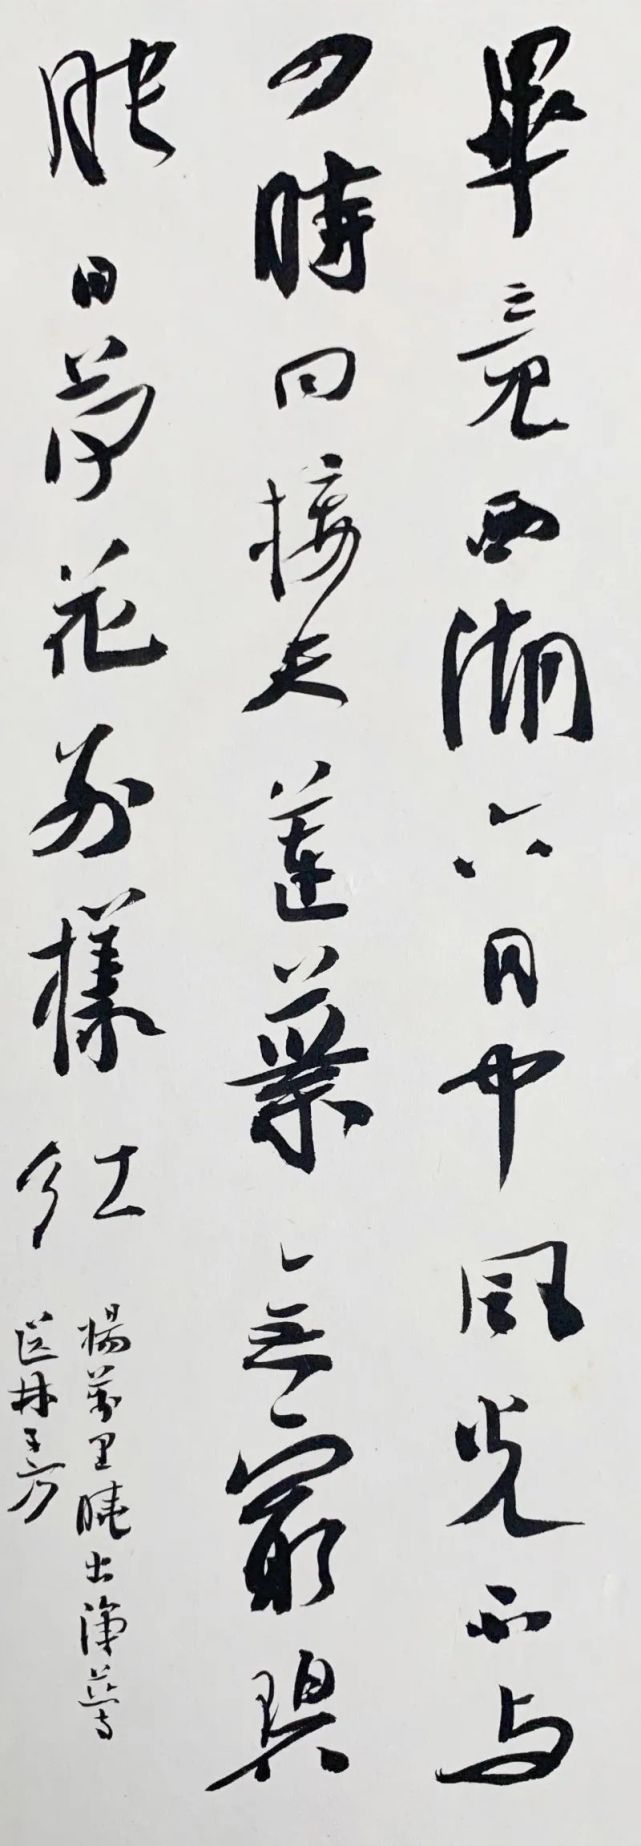 畢竟西湖六月中風光不与
四時同接天蓮葉無窮碧
映日荷花別樣紅
楊萬里曉出淨慈寺
送林子方